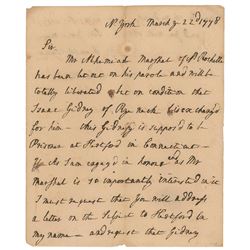 N. York March 22d 1778
Sir
Mr Nehemiah Marshal of N. Rochelle
has been let out on his parole and will be
totally liberated on condition that
Isaac Gidney of Rye Neck be exchanged
for him – this Gidney is suppos'd to be
Prisoner at Hartford in Connecticut –
As I am engag'd in honour as Mr
Marshal is so importantly interested in it
I must request that you will address
a letter on the subject to Hartford in
my name – and request that Gidney